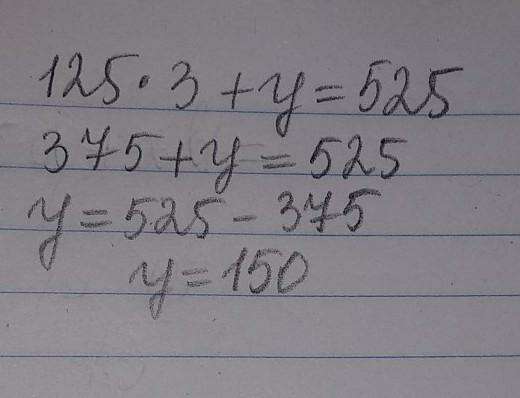 125·3+y=525
375+y=525
y=525-375
y=150